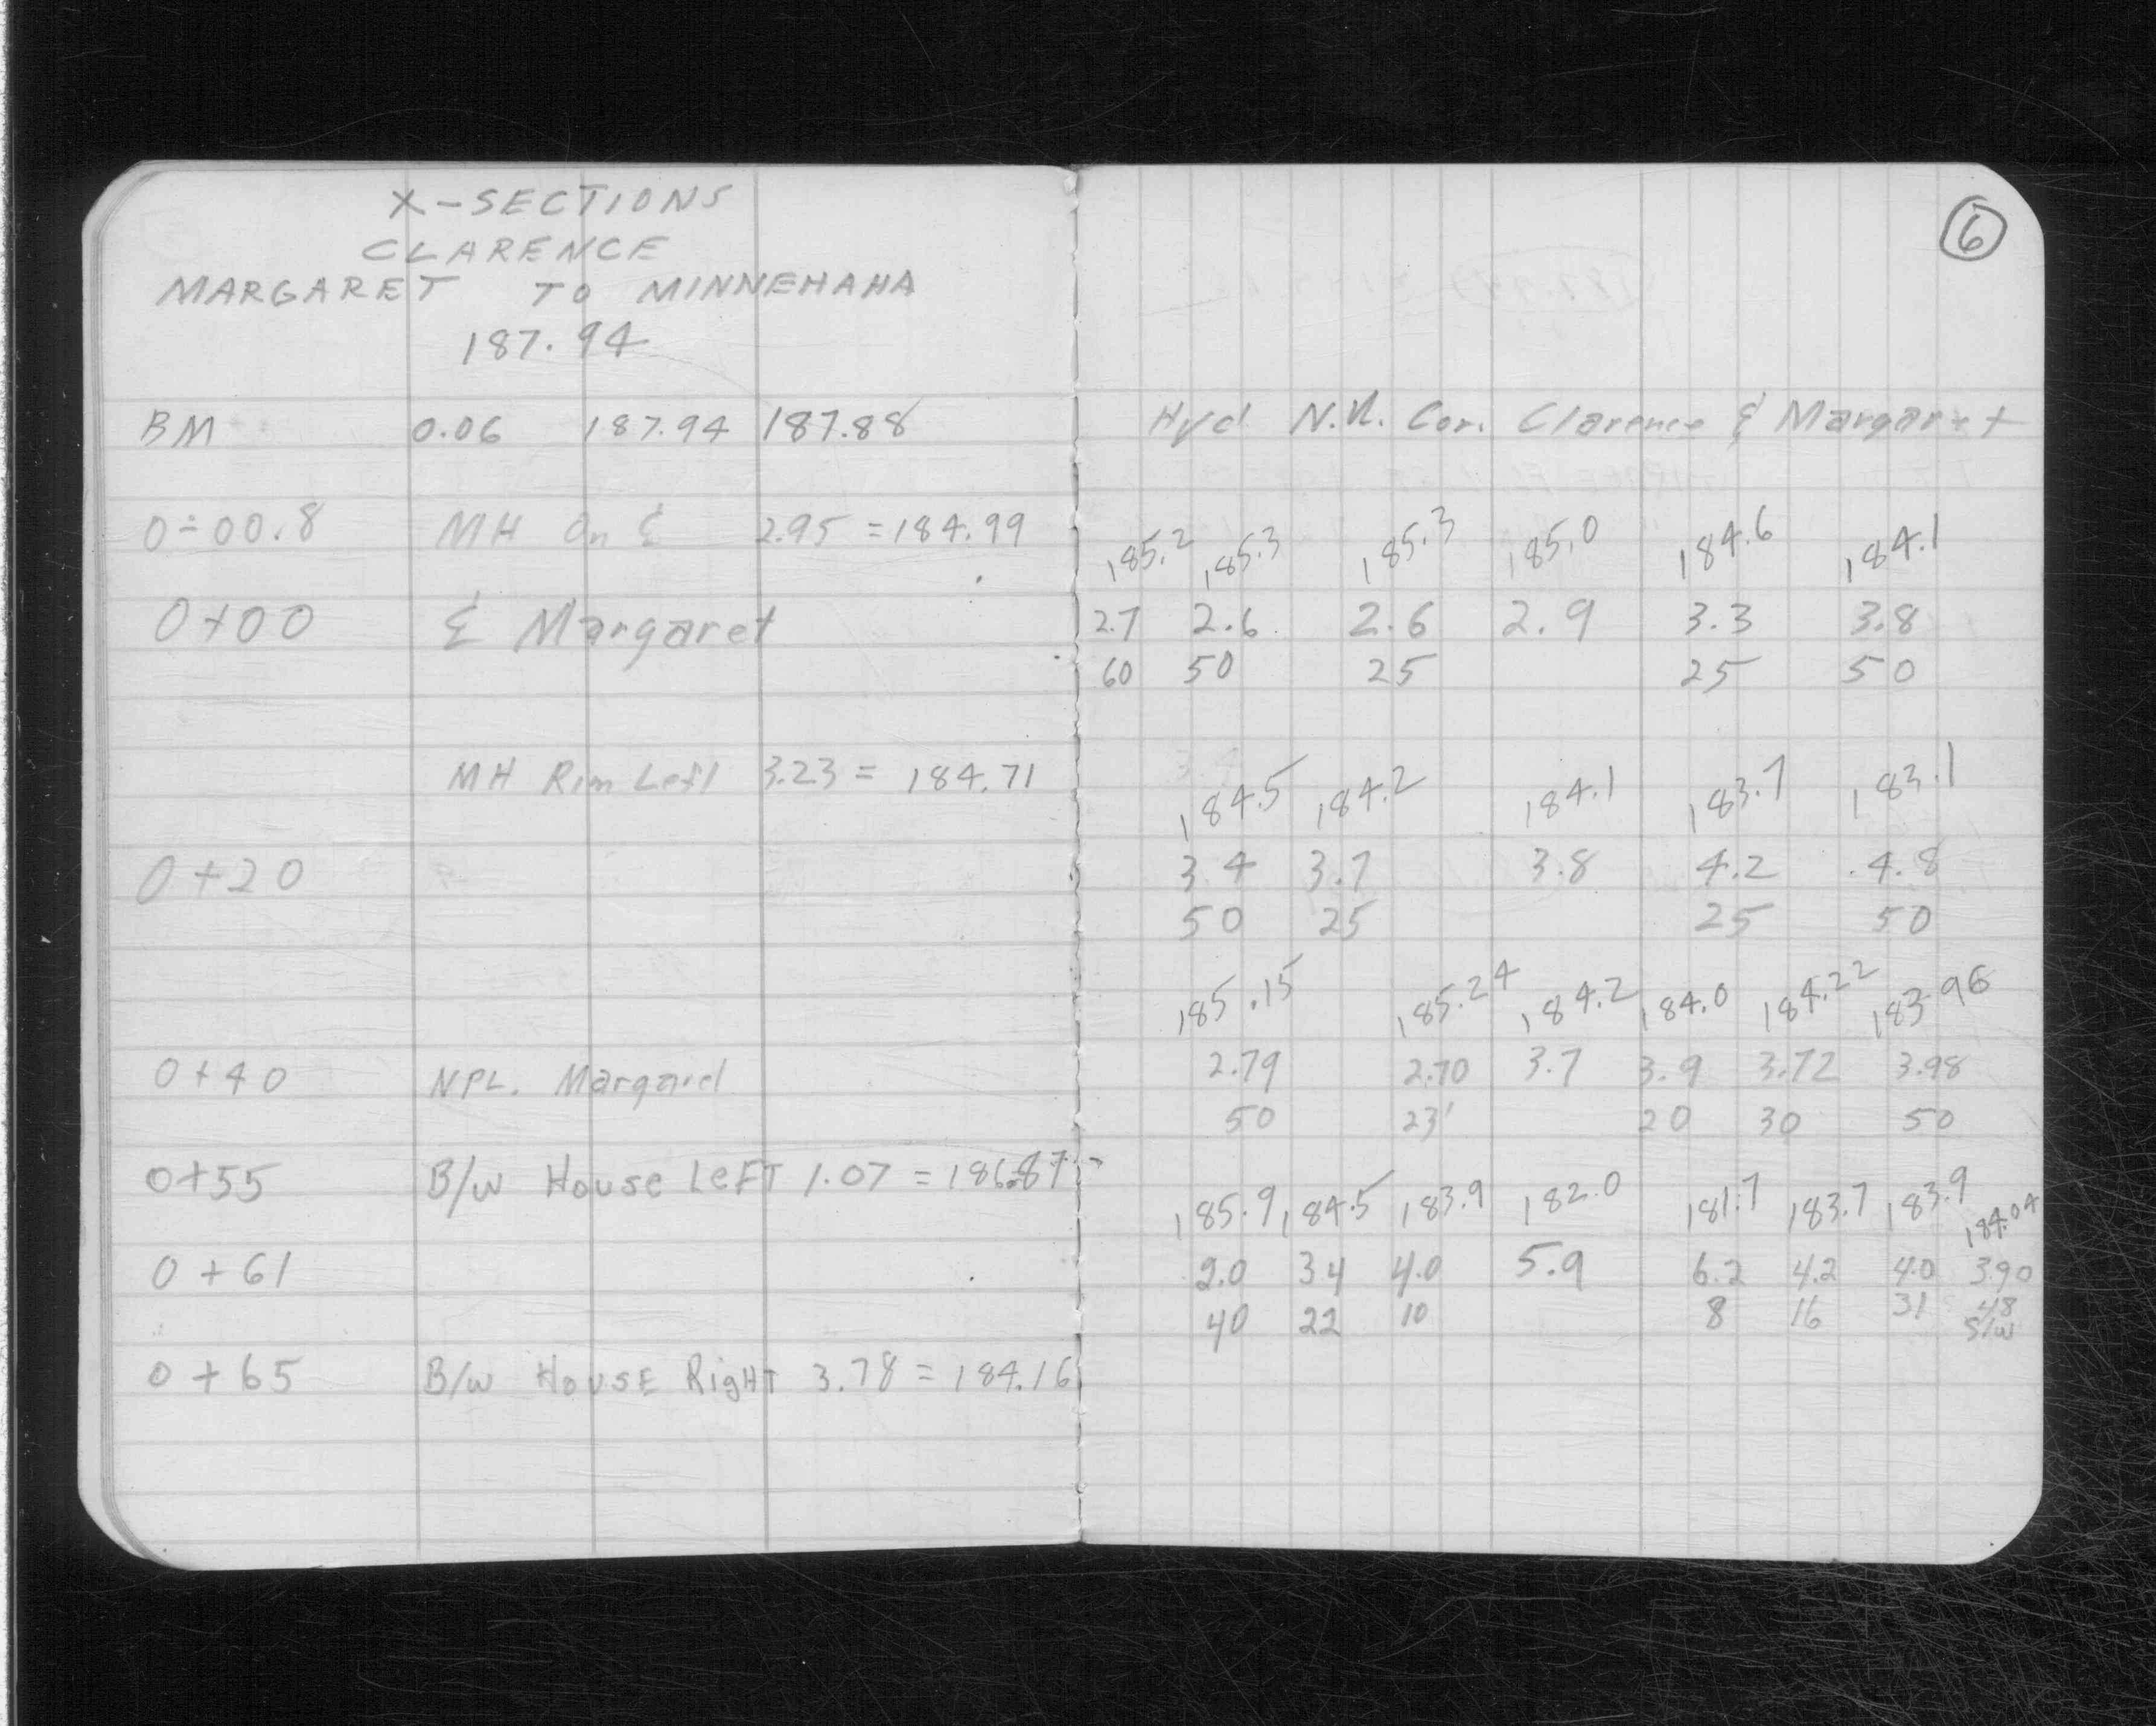 X-SECTIONS
CLARENCE
MARGARET TO MINNEHAHA
187.94
BM 0.06 187.94 187.88
0-00.8 MH On ℄ 2.95 = 184.99
0+00 ℄ Margaret
MH Rim Left 3.23 = 184.71
0+20
0+40 NPL. Margaret
0+55 B/W House LEFT 1.07 = 186.87
0+61
0+65 B/W HOUSE RigHT 3.78 = 184.16
6
Hyd. Cor. Clarence & Margaret
185.2 185.3 185.3 185.0 184.6 184.1
2.7 2.6 2.6 2.9 3.3 3.8
60 50 25 25 50
184.5 184.2 184.1 183.7 183.1
3.4 3.7 3.8 4.2 4.8
50 25 25 50
185.15 185.24 184.2 184.0 184.22 183.96
2.79 2.70 3.7 3.9 3.72 3.98
50 23' 20 30 50
185.9 184.5 183.9 182.0 181.7 183.7 183.9 184.04
2.0 3.4 4.0 5.9 6.2 4.2 4.0 3.90
40 22 10 8 16 31 48
S/W